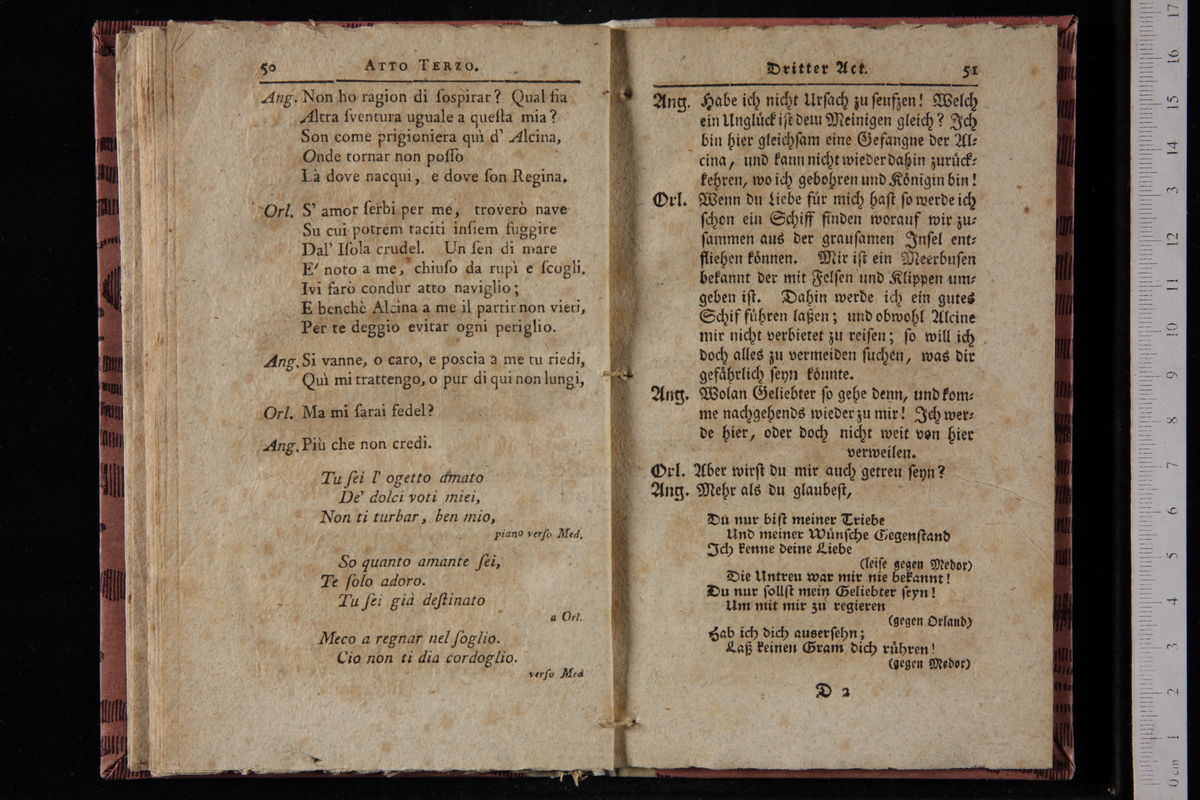 50 ATTO TERZO.
Ang. Non ho ragion di ſoſpirar? Qual fia
Altra ſventura uguale a queſta mia?
Son come prigioniera quì d' Alcina,
Onde tornar non poſſo
Là dove nacqui, e dove ſon Regina.
Orl. S' amor ſerbi per me, troverò nave
Su cui potrem taciti inſiem fuggire
Dal' Iſola crudel. Un ſen di mare
E' noto a me, chiuſo da rupi e ſcogli.
Ivi farò condur atto naviglio;
E benchè Alcina a me il partir non vieti,
Per te deggio evitar ogni periglio.
Ang. Si vanne, o caro, e poscia a me tu riedi,
Quì mi trattengo, o pur di qui non lungi,
Orl. Ma mi ſarai fedel?
Ang. Più che non credi.
Tu ſei l' ogetto amato
De' dolci voti miei,
Non ti turbar, ben mio,
piano verſo Med.
So quanto amante ſei,
Te ſolo adoro.
Tu ſei già deſtinato
a Orl.
Meco a regnar nel ſoglio.
Cio non ti dia cordoglio.
verſo Med
Dritter Act. 51
Ang. Habe ich nicht Urſach zu ſeufzen! Welch
ein Unglück iſt dem Meinigen gleich? Ich
bin hier gleichſam eine Gefangne der Al-
cina, und kann nicht wieder dahin zurück-
kehren, wo ich gebohren und Königin bin!
Orl. Wenn du Liebe für mich haſt ſo werde ich
ſchon ein Schiff finden worauf wir zu-
ſammen aus der grauſamen Inſel ent-
fliehen können. Mir iſt ein Meerbuſen
bekannt der mit Felſen und Klippen um-
geben iſt. Dahin werde ich ein gutes
Schif führen laßen; und obwohl Alcine
mir nicht verbietet zu reiſen; ſo will ich
doch alles zu vermeiden ſuchen, was dir
gefährlich ſeyn könnte.
Ang. Wolan Geliebter ſo gehe denn, und kom-
me nachgehends wieder zu mir! Ich wer-
de hier, oder doch nicht weit von hier
verweilen.
Orl. Aber wirſt du mir auch getreu ſeyn?
Ang. Mehr als du glaubeſt,
Du nur biſt meiner Triebe
Und meiner Wünſche Gegenſtand
Ich kenne deine Liebe
(leiſe gegen Medor)
Die Untreu war mir nie bekannt!
Du nur ſollſt mein Geliebter ſeyn!
Um mit mir zu regieren
(gegen Orland)
Hab ich dich auserſehn;
Laß keinen Gram dich rühren!
(gegen Medor)
D 2
0 cm 1 2 3 4 5 6 7 8 9 10 11 12 13 14 15 16 17